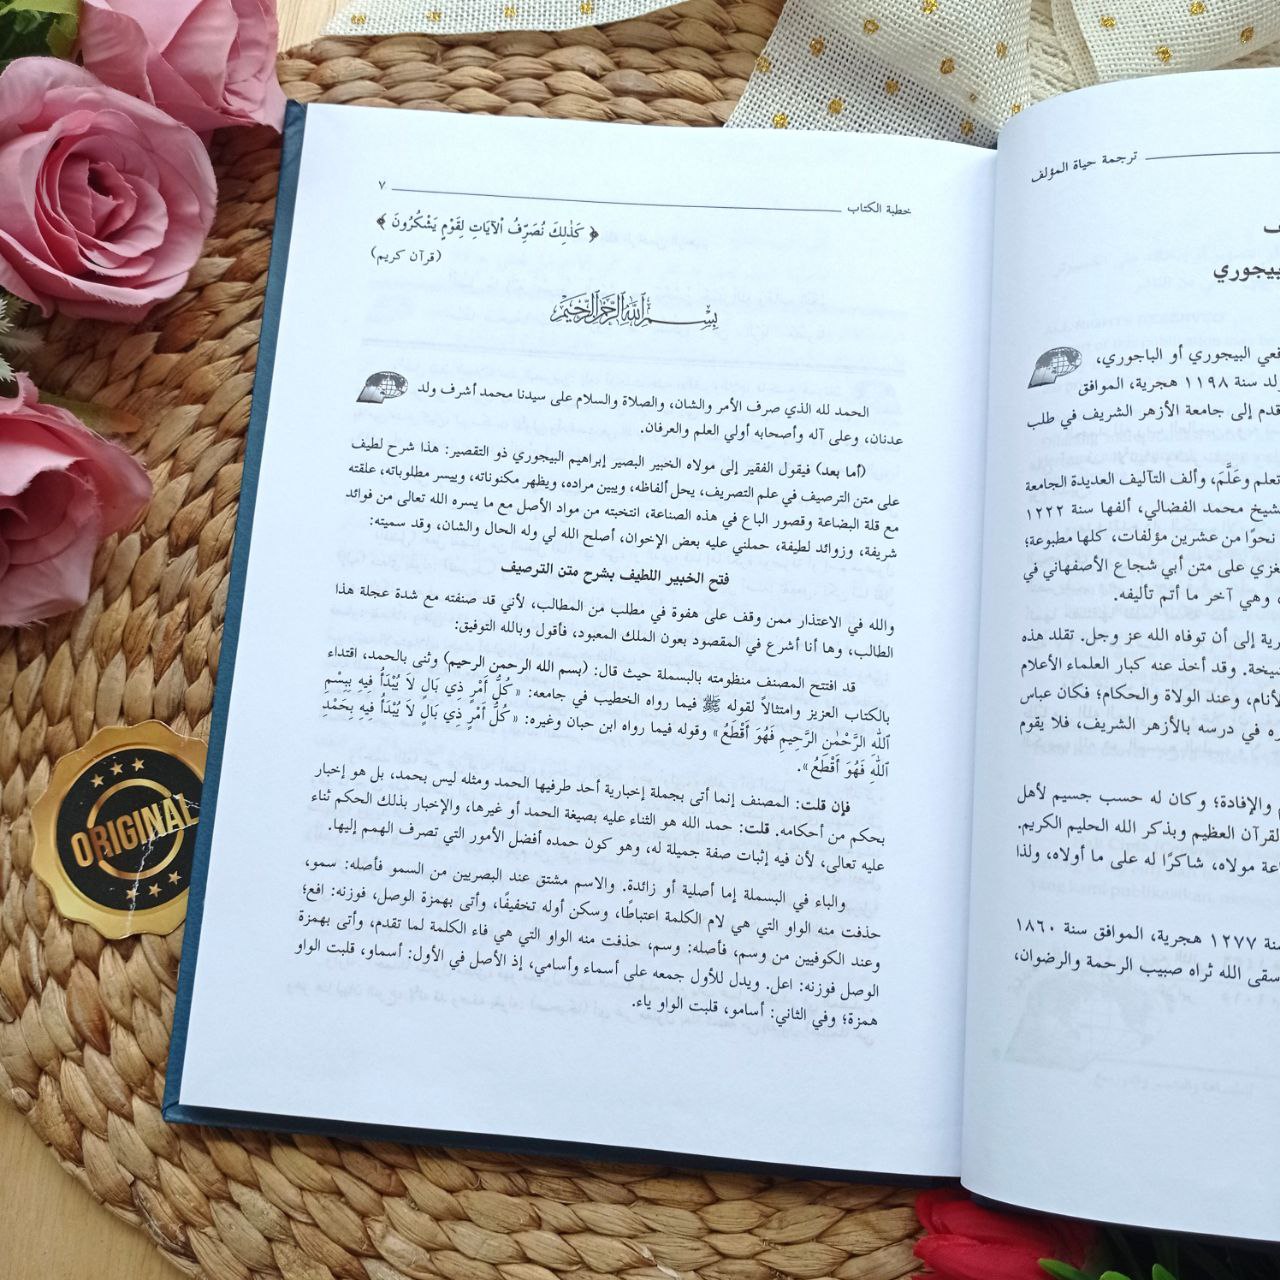 ترجمة حياة المؤلف
ـبيجوري
ـفعي البيجوري أو الباجوري،
ـلد سنة ١١٩٨ هجرية، الموافق
ـقدم إلى جامعة الأزهر الشريف في طلب
تعلم وعَلَّمَ، وألف التآليف العديدة الجامعة
شيخ محمد الفضالي، ألفها سنة ١٢٢٢
نحوًا من عشرين مؤلفات، كلها مطبوعة؛
غزي على متن أبي شجاع الأصفهاني في
، وهي آخر ما أتم تأليفه.
ـرية إلى أن توفاه الله عز وجل. تقلد هذه
ـشيخة. وقد أخذ عنه كبار العلماء الأعلام
لأنام، وعند الولاة والحكام؛ فكان عباس
ـره في درسه بالأزهر الشريف، فلا يقوم
والإفادة؛ وكان له حسب جسيم لأهل
لقرآن العظيم وبذكر الله الحليم الكريم.
ـاعة مولاه، شاكرًا له على ما أولاه، ولذا
ـنة ١٢٧٧ هجرية، الموافق سنة ١٨٦٠
سقى الله ثراه صبيب الرحمة والرضوان،
خطبة الكتاب ٧
﴿ كَذٰلِكَ نُصَرِّفُ الآيَاتِ لِقَوْمٍ يَشْكُرُونَ ﴾
(قرآن كريم)
بِسْمِ اللهِ الرَّحْمٰنِ الرَّحِيْمِ
الحمد لله الذي صرف الأمر والشان، والصلاة والسلام على سيدنا محمد أشرف ولد
عدنان، وعلى آله وأصحابه أولي العلم والعرفان.
(أما بعد) فيقول الفقير إلى مولاه الخبير البصير إبراهيم البيجوري ذو التقصير: هذا شرح لطيف
على متن الترصيف في علم التصريف، يحل ألفاظه، ويبين مراده، ويظهر مكنوناته، وييسر مطلوباته، علقته
مع قلة البضاعة وقصور الباع في هذه الصناعة، انتخبته من مواد الأصل مع ما يسره الله تعالى من فوائد
شريفة، وزوائد لطيفة، حملني عليه بعض الإخوان، أصلح الله لي وله الحال والشان، وقد سميته:
فتح الخبير اللطيف بشرح متن الترصيف
والله في الاعتذار ممن وقف على هفوة في مطلب من المطالب، لأني قد صنفته مع شدة عجلة هذا
الطالب، وها أنا أشرع في المقصود بعون الملك المعبود، فأقول وبالله التوفيق:
قد افتتح المصنف منظومته بالبسملة حيث قال: (بسم الله الرحمن الرحيم) وثنى بالحمد، اقتداء
بالكتاب العزيز وامتثالاً لقوله ﷺ فيما رواه الخطيب في جامعه: « كُلُّ أَمْرٍ ذِي بَالٍ لاَ يُبْدَأُ فِيهِ بِبِسْمِ
اللهِ الرَّحْمٰنِ الرَّحِيمِ فَهُوَ أَقْطَعُ » وقوله فيما رواه ابن حبان وغيره: « كُلُّ أَمْرٍ ذِي بَالٍ لاَ يُبْدَأُ فِيهِ بِحَمْدِ
اللهِ فَهُوَ أَقْطَعُ ».
فإن قلت: المصنف إنما أتى بجملة إخبارية أحد طرفيها الحمد ومثله ليس بحمد، بل هو إخبار
بحكم من أحكامه. قلت: حمد الله هو الثناء عليه بصيغة الحمد أو غيرها، والإخبار بذلك الحكم ثناء
عليه تعالى، لأن فيه إثبات صفة جميلة له، وهو كون حمده أفضل الأمور التي تصرف الهمم إليها.
والباء في البسملة إما أصلية أو زائدة. والاسم مشتق عند البصريين من السمو فأصله: سمو،
حذفت منه الواو التي هي لام الكلمة اعتباطًا، وسكن أوله تخفيفًا، وأتى بهمزة الوصل، فوزنه: افع؛
وعند الكوفيين من وسم، فأصله: وسم، حذفت منه الواو التي هي فاء الكلمة لما تقدم، وأتى بهمزة
الوصل فوزنه: اعل. ويدل للأول جمعه على أسماء وأسامي، إذ الأصل في الأول: أسماو، قلبت الواو
همزة؛ وفي الثاني: أسامو، قلبت الواو ياء.
ORIGINAL